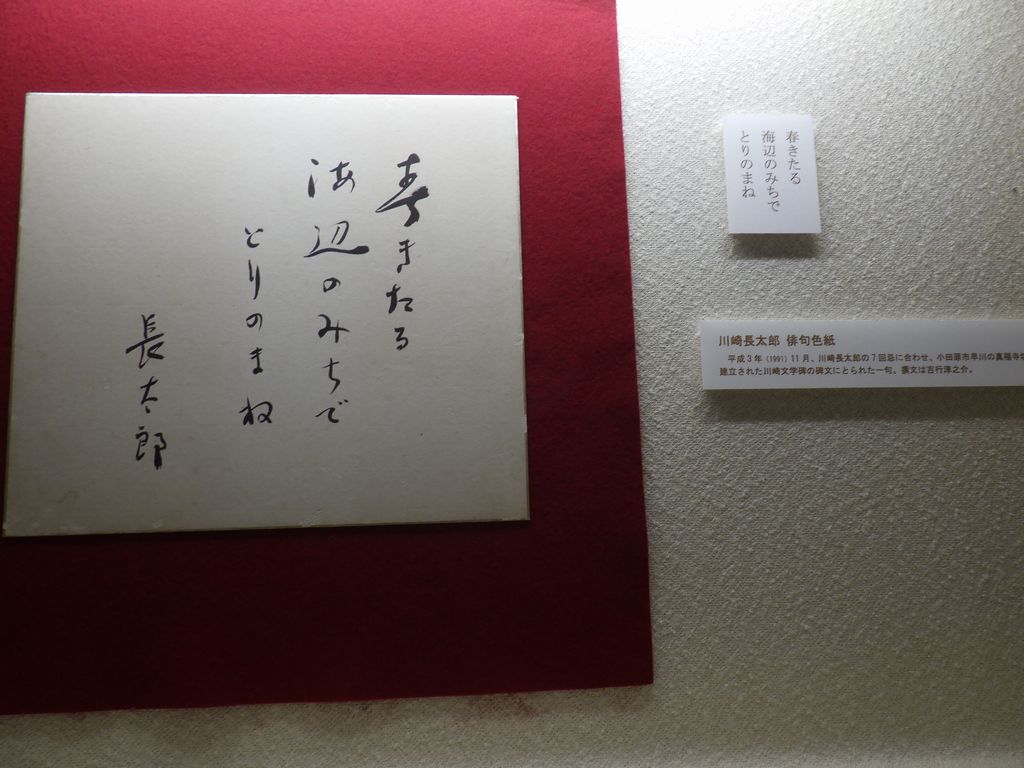 春きたる
海辺のみちで
とりのまね
長太郎
春きたる
海辺のみちで
とりのまね
川崎長太郎 俳句色紙
平成3年（1991）11月、川崎長太郎の7回忌に合わせ、小田原市早川の真福寺
建立された川崎文学碑の碑文にとられた一句。撰文は吉行淳之介。